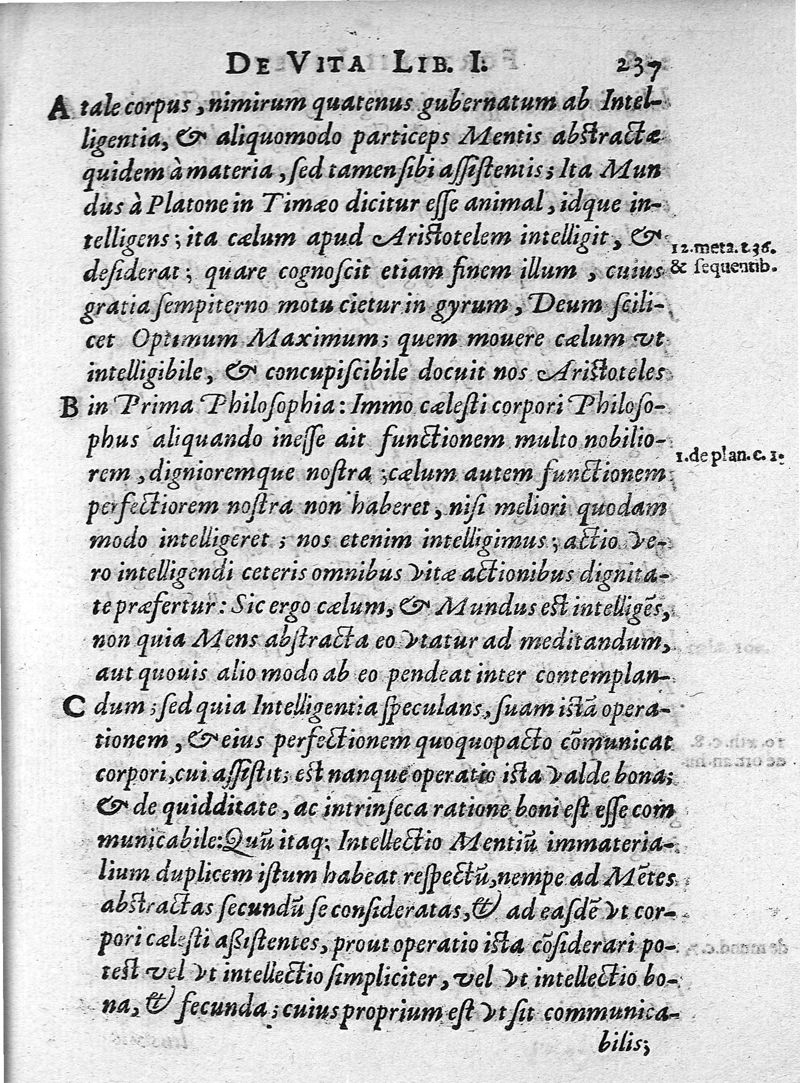 DE VITA LIB. I. 237
A tale corpus, nimirum quatenus gubernatum ab Intel-
ligentia, & aliquomodo particeps Mentis abstractæ
quidem à materia, sed tamen sibi assistentis; Ita Mun
dus à Platone in Timæo dicitur esse animal, idque in-
telligens; ita cælum apud Aristotelem intelligit, &
12. meta. t. 36.
desiderat; quare cognoscit etiam finem illum, cuius
& sequentib.
gratia sempiterno motu cietur in gyrum, Deum scili-
cet Optimum Maximum; quem mouere cælum vt
intelligibile, & concupiscibile docuit nos Aristoteles
B in Prima Philosophia: Immo cælesti corpori Philoso-
phus aliquando inesse ait functionem multo nobilio-
1. de plan. c. 1.
rem, dignioremque nostra; cælum autem functionem
perfectiorem nostra non haberet, nisi meliori quodam
modo intelligeret; nos etenim intelligimus; actio ve-
ro intelligendi ceteris omnibus vitæ actionibus dignita-
te præfertur: Sic ergo cælum, & Mundus est intelligẽs,
non quia Mens abstracta eo vtatur ad meditandum,
aut quouis alio modo ab eo pendeat inter contemplan-
C dum; sed quia Intelligentia speculans, suam istã opera-
tionem, & eius perfectionem quoquopacto cõmunicat
corpori, cui assistit; est nanque operatio ista valde bona;
& de quidditate, ac intrinseca ratione boni est esse com
municabile: Quũ itaq; Intellectio Mentiũ immateria-
lium duplicem istum habeat respectũ, nempe ad Mẽtes
abstractas secundũ se consideratas, & ad easdẽ vt cor-
pori cælesti assistentes, prout operatio ista cõsiderari po-
test vel vt intellectio simpliciter, vel vt intellectio bo-
na, & fecunda; cuius proprium est vt sit communica-
bilis;